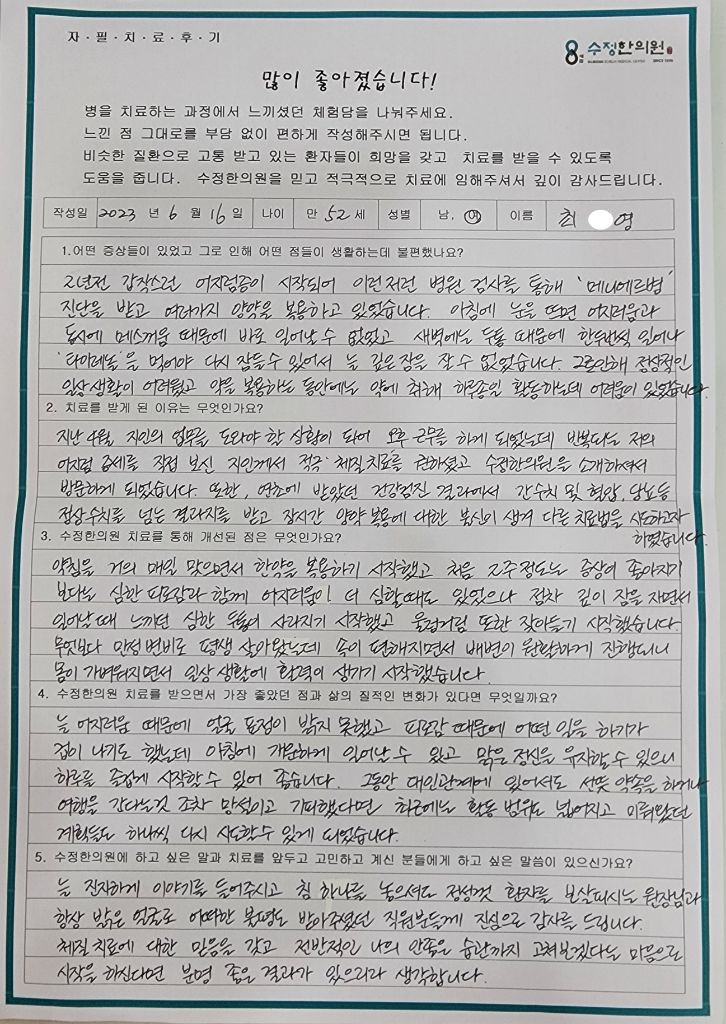 자·필·치·료·후·기
8체질 수정한의원
SINCE 1996
많이 좋아졌습니다!
병을 치료하는 과정에서 느끼셨던 체험담을 나눠주세요.
느낀 점 그대로를 부담 없이 편하게 작성해주시면 됩니다.
비슷한 질환으로 고통 받고 있는 환자들이 희망을 갖고 치료를 받을 수 있도록
도움을 줍니다. 수정한의원을 믿고 적극적으로 치료에 임해주셔서 깊이 감사드립니다.
작성일 2023 년 6 월 16 일 나이 만 52 세 성별 남, 여 이름 최 영
1.어떤 증상들이 있었고 그로 인해 어떤 점들이 생활하는데 불편했나요?
2년전 갑작스런 어지럼증이 시작되어 이런저런 병원 검사를 통해 '메니에르병'
진단을 받고 여러가지 양약을 복용하고 있었습니다. 아침에 눈을 뜨면 어지러움과
동시에 메스꺼움 때문에 바로 일어날 수 없었고 새벽에는 두통 때문에 한두번씩 일어나
'타이레놀'을 먹어야 다시 잠들 수 있어서 늘 깊은 잠을 잘 수 없었습니다. 그로인해 정상적인
일상생활이 어려웠고 약을 복용하는 동안에는 약에 취해 하루종일 활동하는데 어려움이 있었습니다.
2. 치료를 받게 된 이유는 무엇인가요?
지난 4월 지인의 업무를 도와야 할 상황이 되어 오후 근무를 하게 되었는데 반복되는 저의
어지럼 증세를 직접 보신 지인께서 적극 체질치료를 권하셨고 수정한의원을 소개하셔서
방문하게 되었습니다. 또한, 연초에 받았던 건강검진 결과에서 간수치 및 혈압, 당뇨등
정상수치를 넘는 결과지를 받고 장시간 양약 복용에 대한 불신이 생겨 다른 치료법을 시도하고자
하였습니다.
3. 수정한의원 치료를 통해 개선된 점은 무엇인가요?
약침을 거의 매일 맞으면서 한약을 복용하기 시작했고 처음 2주정도는 증상이 좋아지기
보다는 심한 피로감과 함께 어지러움이 더 심할때도 있었으나 점차 깊이 잠을 자면서
일어날때 느끼던 심한 두통이 사라지기 시작했고 울렁거림 또한 잦아들기 시작했습니다.
무엇보다 만성변비로 평생 살아왔는데 속이 편해지면서 배변이 원활하게 진행되니
몸이 가벼워지면서 일상 생활에 활력이 생기기 시작했습니다.
4. 수정한의원 치료를 받으면서 가장 좋았던 점과 삶의 질적인 변화가 있다면 무엇일까요?
늘 어지러움 때문에 얼굴 표정이 밝지 못했고 피로감 때문에 어떤 일을 하기가
겁이 나기도 했는데 아침에 개운하게 일어날 수 있고 맑은 정신을 유지할 수 있으니
하루를 즐겁게 시작할 수 있어 좋습니다. 그동안 대인관계에 있어서도 선뜻 약속을 하거나
여행을 간다는것 조차 망설이고 기피했다면 최근에는 활동 범위도 넓어지고 미뤄왔던
계획들도 하나씩 다시 시도할 수 있게 되었습니다.
5. 수정한의원에 하고 싶은 말과 치료를 앞두고 고민하고 계신 분들에게 하고 싶은 말씀이 있으신가요?
늘 진지하게 이야기를 들어주시고 침 하나를 놓으셔도 정성껏 환자를 보살피시는 원장님과
항상 밝은 얼굴로 어떠한 불평도 받아주셨던 직원분들께 진심으로 감사를 드립니다.
체질치료에 대한 믿음을 갖고 전반적인 나의 안좋은 습관까지 고쳐보겠다는 마음으로
시작을 하신다면 분명 좋은 결과가 있으리라 생각합니다.